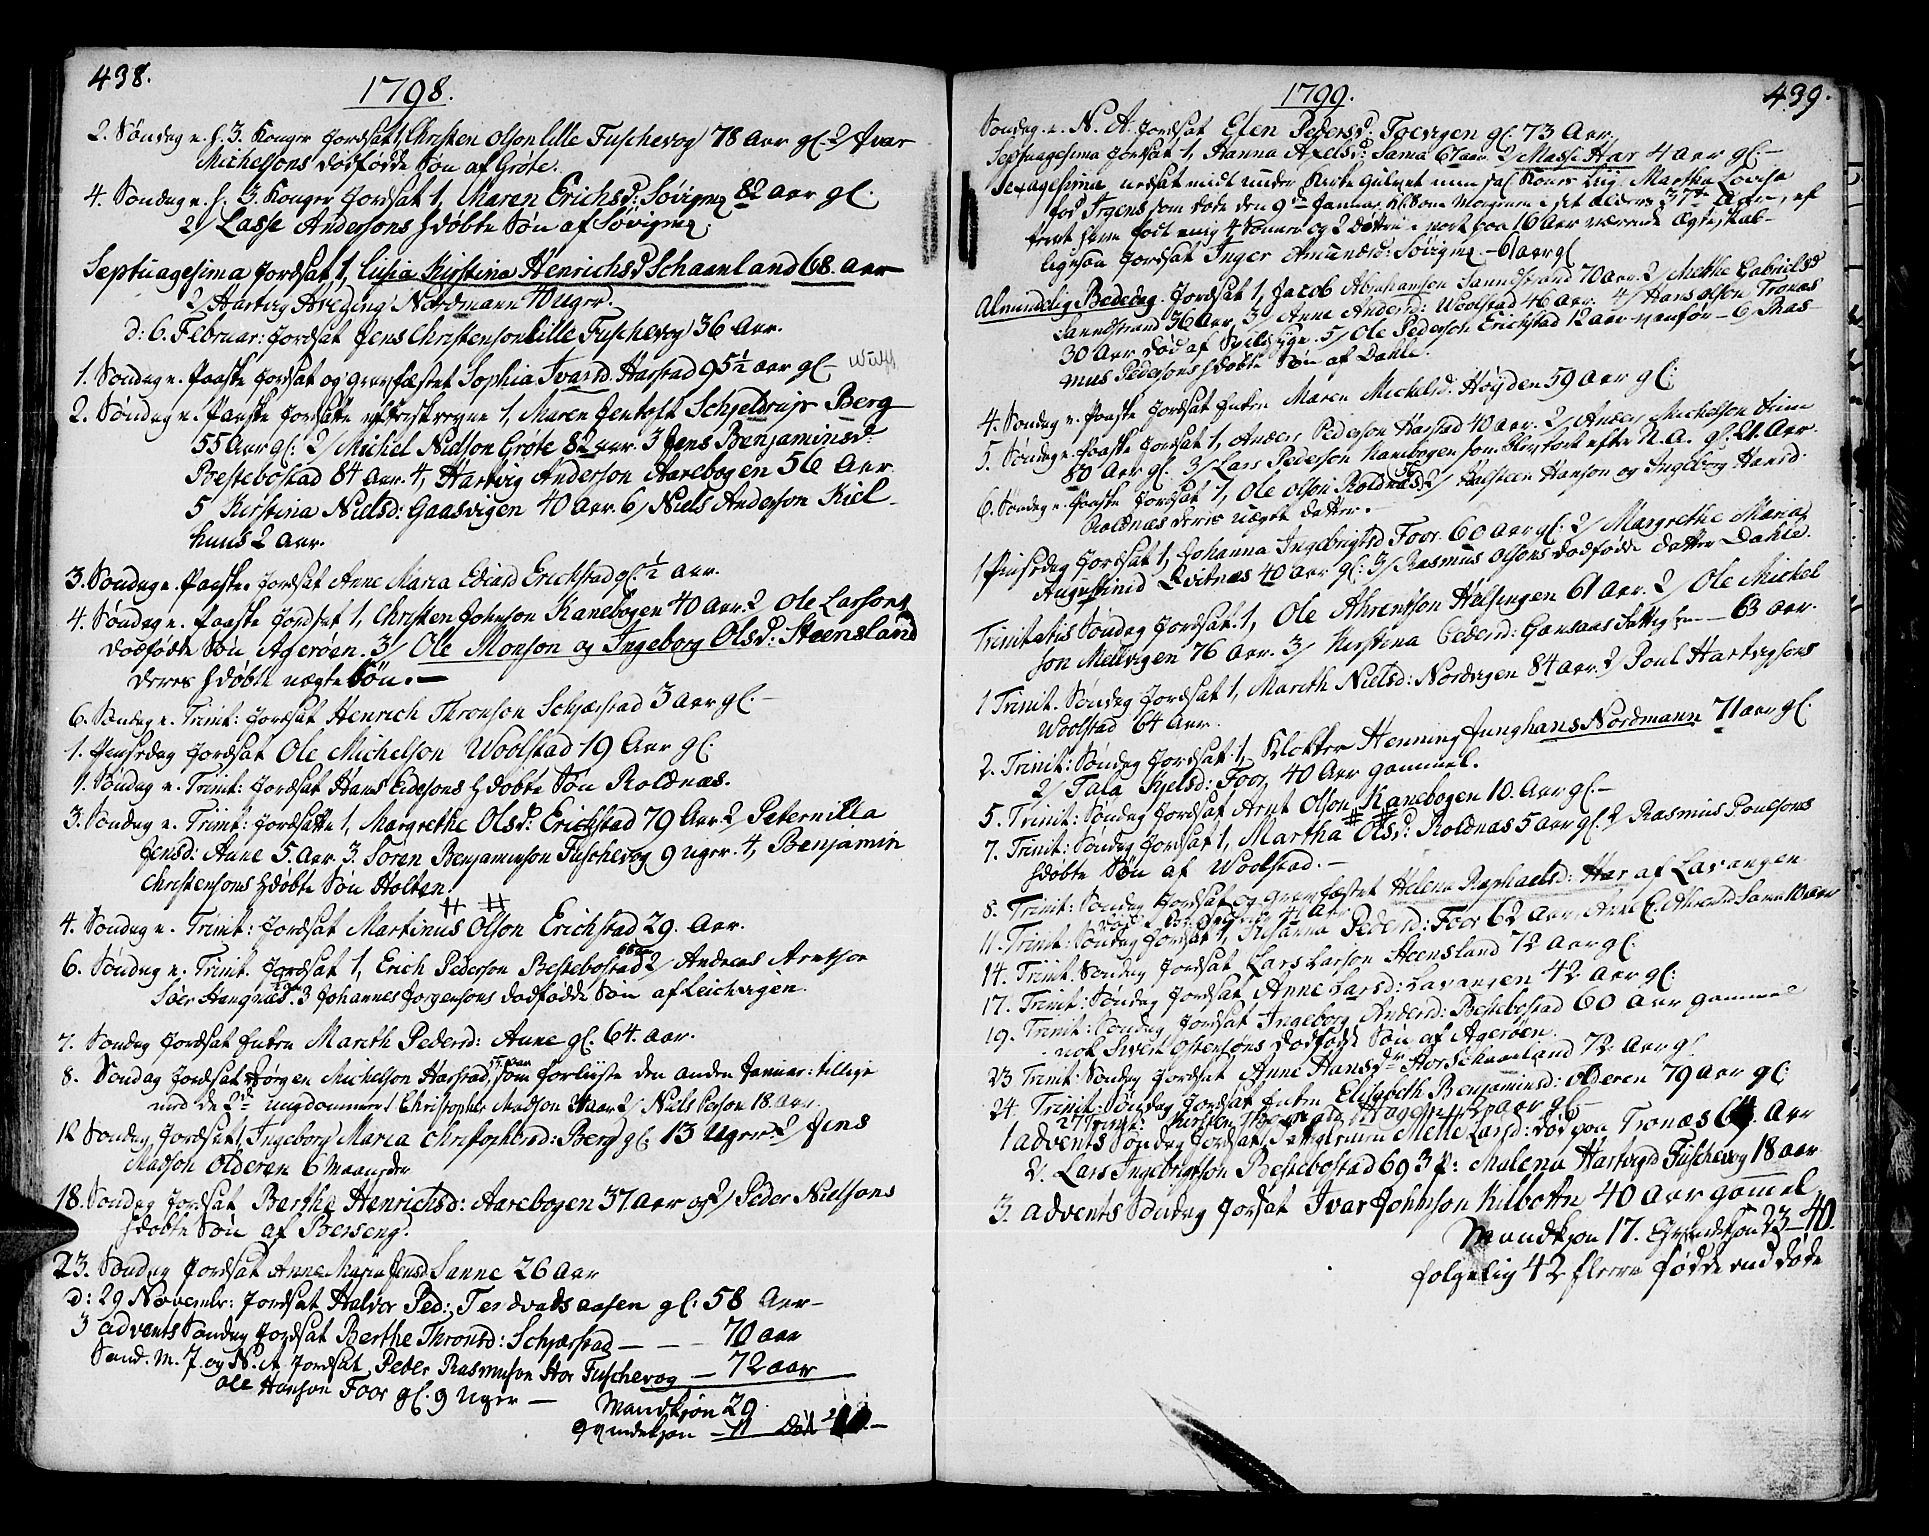 438.
1798.
2. Søndag e. h. 3. Konger Jordsat 1, Christen Olson Lille Fuschevog 78 Aar gl. 2/ Ivar
Michelsons dødfødde Søn af Grøte.
4. Søndag e. h. 3. Konger Jordsat 1, Maren Erichsd: Sørvigen 82 aar gl.
2/ Lasse Andersons hdøbte Søn af Sørvigen.
Septuagesima Jordsat 1, Lisia Kirstina Henrichsd Schaanland 68. Aar
2/ Hartvig Hveding Nordmann 40 uger.
d: 6. Februar: Jordsat Jens Christenson Lille Fuschevog 36 Aar.
1. Søndag e. Paaske Jordsat og Gravfæstet Sophia Ivarsd. Harstad 95½ aar gl.
2. Søndag e. Paaske Jordsatte 1, Maren Jentoft Schjeldrup Berg
55 Aar gl: 2/ Michel Nielson Grøte 82 aar. 3 Jens Benjaminsd:
Bestebostad 84 Aar. 4, Hartvig Anderson Aarebogen 56 Aar.
5 Kirstina Nielsd: Gaasvigen 40 Aar. 6/ Niels Anderson Kiel-
huus 2 Aar.
3. Søndag e. Paaske Jordsat Anne Maria Edisd Erickstad gl. ½ aar.
4. Søndag e. Paaske Jordsat 1, Christen Johnson Kanebogen 40 Aar. 2/ Ole Larsons
dødfødte Søn Agerøen. 3/ Ole Monson og Ingeborg Olsd: Steensland
deres hdøbte uægte Søn. —
6. Søndag e. Trinit: Jordsat Henrich Thronson Schjærstad 3 Aar gl. —
1. Pinsedag Jordsat Ole Michelson Woolstad 19 Aar gl:
1. Søndag e. Trinit: Jordsat Hans Edisons hdøbte Søn Roldnæs.
3. Søndag e. Trinit: Jordsatte 1, Margrethe Olsd: Erickstad 79 Aar. 2/ Peternilla
Jensd: Aune 5. Aar. 3. Søren Benjaminson Fuschevog 9 uger. 4, Benjamin
Christensons hdøbte Søn Holten.
4. Søndag e. Trinit: Jordsat Martinus Olson Erichstad 29. Aar.
6. Søndag e. Trinit. Jordsat 1, Erich Pederson Bestebostad 2/ Andreas Arntson
Søer Hangnæs. 3 Johannes Jørgensons dødfødde Søn af Leichvigen.
7. Søndag Jordsat Enken Mareth Pedersd: Aune gl. 64. Aar.
8. Søndag Jordsat Jørgen Michelson Harstad, som forliiste den anden Januar: tillige
med de 2de ungdommer 1 Christopher Madson 2/ Niels Person 18. Aar.
12 Søndag Jordsat 1, Ingeborg Maria Christophersd: Berg gl: 13 Uger. 2/ Jens
Madson Olderen 6 Maaneder
18. Søndag Jordsat Berthe Henrichsd: Aarebogen 37. aar og 2/ Peder Nielsons
hdøbte Søn af Berseng.
23. Søndag Jordsat Anne Maria Jensd Sanne 26 Aar
d: 29 Novembr: Jordsat Halvor Ped: Tendvadsaasen gl: 58 Aar —
3 Advents Søndag Jordsat Berthe Thronsd: Schjærstad — — — 70 aar
Sønd. m. J. og N. A. Jordsat Peder Rasmuson Stor Fuschevog — 72 aar
Ole Hanson Foor gl. 9 Uger —
Mandkjøn 29.
Qvindekjøn — 11
1799.
439.
Søndag e. N. A. Jordsat Elen Pedersd: Toevigen gl. 73 Aar.
Septuagesima Jordsat 1, Hanna Axelsd: Sama 67 aar. 2 Massi Har 4 aar gl —
Sexagesima nedsat midt under Kirke Gulvet min sal. Kones Liig Martha Lovise
fød Irgens som døde den 9de Januar Kl. 5 om Morgenen i det Alders 37te Aar, ef
terat have født mig 4 Sønner og 2 Døttre i vort paa 16 Aar værende Ægteskab —
ligesaa Jordsat Inger Amundsd: Sørvigen — 61 aar gl
Almindelig Bededag Jordsat 1, Jacob Abrahamson Sandstrand 70 aar. 2/ Mette Gabrielsd
Sandstrand 36 Aar. 3/ Anne Andersd: Woolstad 46 aar. 4/ Hans Olson Tronæs
30 Aar død af Spedalsyge. 5/ Ole Pederson Erickstad 12 aar vanfør — 6/ Ras-
mus Pedersons hdøbte Søn af Dahle.
4. Søndag e. Paaske Jordsat Enken Maren Michelsd: Høyden 59 aar gl:
5. Søndag e. Paaske Jordsat 1, Anders Pederson Harstad 40 aar. 2/ Anders Michelson
80 Aar gl. 3/ Lars Pederson Kanebogen som blev bort efter N. A. gl: 21. Aar.
6. Søndag e. Paaske Jordsat 1, Ole Olson Roldnæs 2/ Halsteen Hanson og Ingeborg Hansd:
Roldnæs deris uægte datter. —
1 Pinsedag Jordsat 1, Johanna Ingebrigtsd Foor 60 aar gl: 2/ Margrethe Maria
Augustinsd Qvitnæs 40 aar gl: 3/ Rasmus Olsons dødfødde datter Dahle.
Trinitatis Søndag Jordsat 1, Ole Ahrentson Helsingen 61 aar. 2/ Ole Mickel
son Mellvigen 76 Aar. 3/ Kirstina Pedersd: Gansaas Fattig — 63 aar.
1 Trinit. Søndag Jordsat 1, Mareth Nielsd: Nordvigen 84 aar. 2/ Poul Hartvigsons
Woolstad 64 Aar.
2. Trinit: Søndag Jordsat 1, Klokker Henning Junghans Nordmann 71 aar gl:
2/ Tala Kjelsd: Foor 40 Aar gammel.
5. Trinit: Søndag Jordsat Arnt Olson Kanebogen 10. Aar gl. —
7. Trinit: Søndag Jordsat 1, Martha Olsd: Roldnæs 5 aar gl. 2/ Rasmus Poulsons
hdøbte Søn af Woolstad. —
8. Trinit: Søndag Jordsat og Gravfæstet Helena Raphaelsd: Har af Lavangen
11. Trinit: Søndag Jordsat 1, Susanna Pedersd: Foor 62 Aar, Anne E. Ahrentsd Sanne 10 aar
14. Trinit. Søndag Jordsat Lars Larson Steensland 72 Aar gl:
17. Trinit: Søndag Jordsat Anne Larsd: Lavangen 42 Aar gl:
19. Trinit: Søndag Jordsat Ingeborg Andersd: Bestebostad 60 Aar gammel
nok Sivert Ostensons dødfødde Søn af Agerøen.
23 Trinit: Søndag Jordsat Anne Hansdr Stor Schaanland 72 Aar gl
24. Trinit: Søndag Jordsat Enken Elisabeth Benjaminsd: Olderen 79 aar gl:
27 Trinit: Kirsten aar gl —
1 Advents Søndag Jordsat Mette Larsd: død paa Tronæs 64. Aar
2. Lars Ingebrigtson Bestebostad 69 3 p: Malena Hartvigsd Fuschevog 18 aar
3. Advents Søndag Jordsat Ivar Johnson Kilbottn 40 aar gammel
Mandkjøn 17. Qvindekjøn 23 — 40.
følgelig 42 fleere fødde end døde